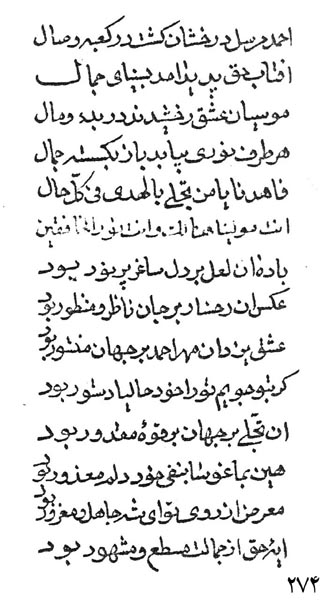 احمد مرسل درخشان کشت در کعبه وصال
افتاب حق پدید امد به بینای جمال
موسیان عشق رخشیدند در بدء و مال
هر طرف نوری بیابد باز بکسته جمال
فاهدنا یا من تجلی بالهدی فی کل حال
انت مولینا وانت نور الخافقین
باده ان لعل بر دل ساغر پر نور بود
عکس ان رخسار بر جان ناظر و منظور بود
عشق یزدان مهر احمد بر جهان منشور بود
کر بتو جویم تورا خود حالیا دستور بود
ان تجلی بر جهان بر قوهٔ مقدور بود
هین بما غوسا بنفی خود دلم معذور بود
معرض از روی تو ای شه جاهل و مغرور بود
ایهٔ حق از جمالت مسطع و مشهود بود
۲۷۴